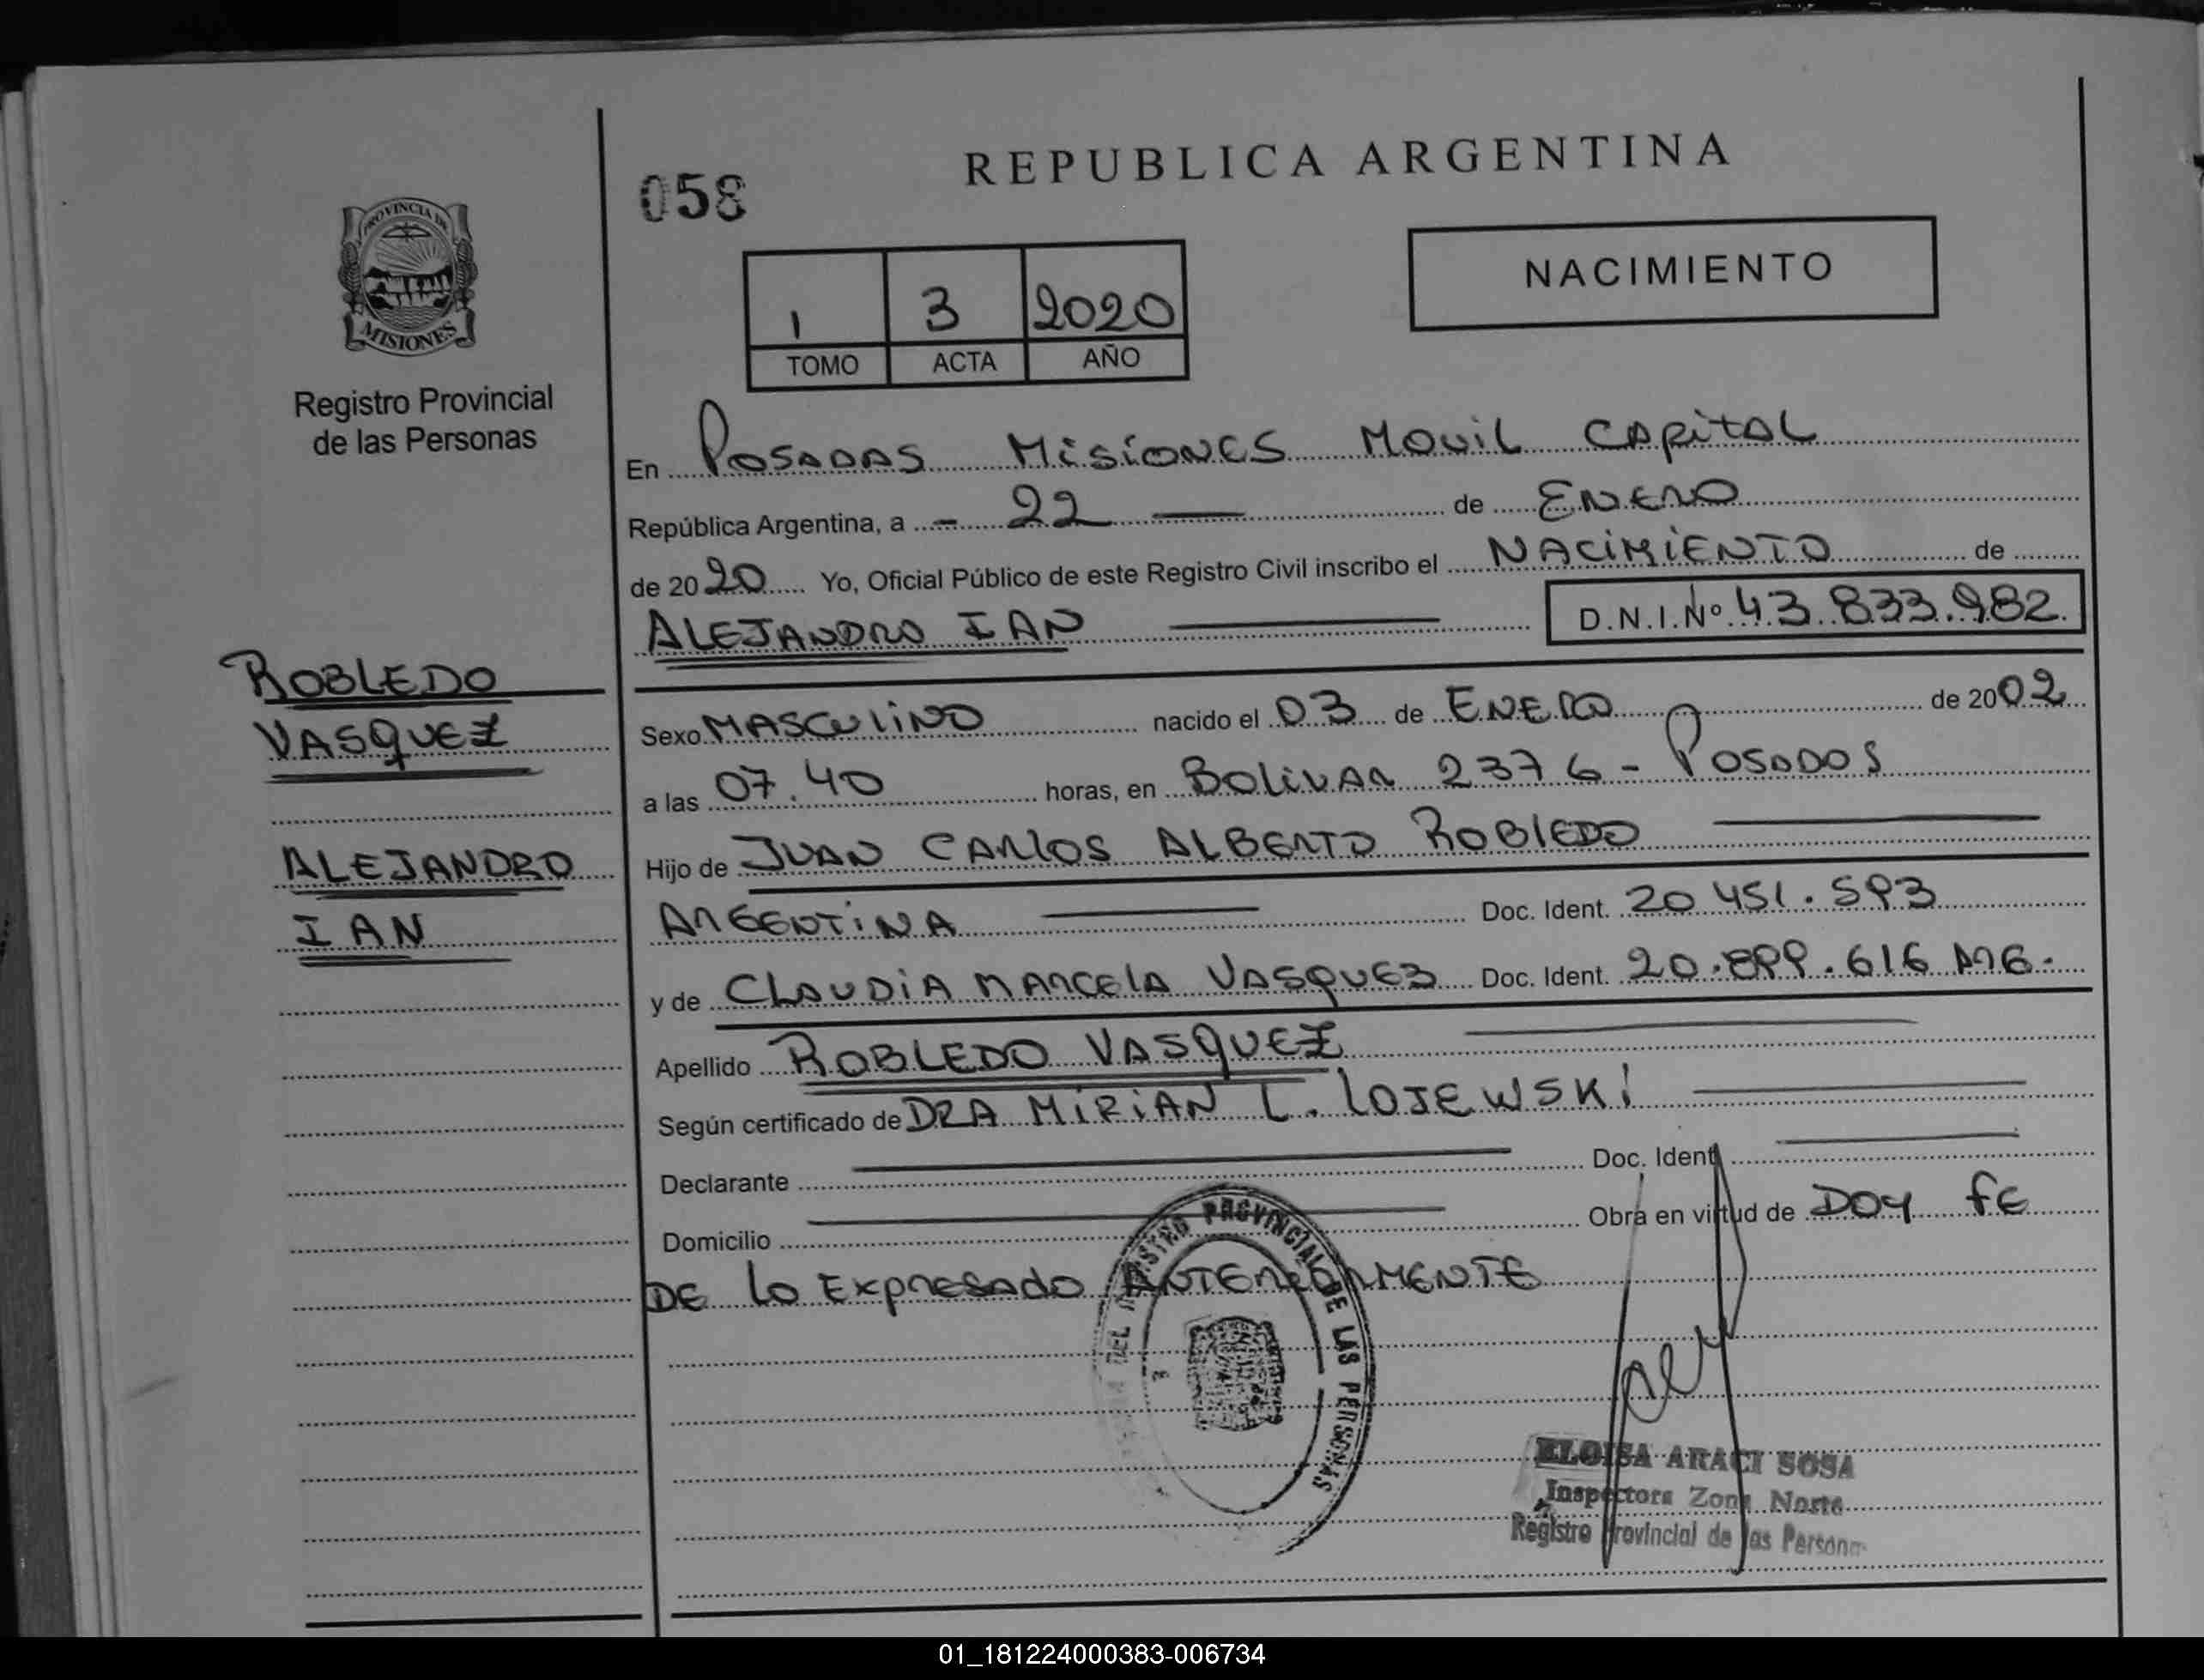 REPUBLICA ARGENTINA
058
NACIMIENTO
1 3 2020
TOMO ACTA AÑO
PROVINCIA DE
MISIONES
Registro Provincial
de las Personas
En Posadas Misiones Movil Capital
República Argentina, a - 22 — de Enero
de 2020 Yo, Oficial Público de este Registro Civil inscribo el NACIMIENTO de
ALEJANDRO IAN — D.N.I. Nº 43.833.982
ROBLEDO
VASQUEZ
ALEJANDRO
IAN
Sexo MASCULINO nacido el 03 de ENERO de 2002
a las 07.40 horas, en Bolivar 2376 - Posadas
Hijo de JUAN CARLOS ALBERTO ROBLEDO —
ARGENTINA — Doc. Ident. 20 451.593
y de CLAUDIA MARCELA VASQUEZ Doc. Ident. 20.899.616 ARG.
Apellido ROBLEDO VASQUEZ —
Según certificado de DRA MIRIAN L. LOJEWSKI —
Declarante — Doc. Ident. —
Domicilio — Obra en virtud de DOY FE
DE LO EXPRESADO ANTERIORMENTE
DEL REGISTRO PROVINCIAL DE LAS PERSONAS
ELOISA ARACI SOSA
Inspectora Zona Norte
Registro Provincial de las Persona
01_181224000383-006734